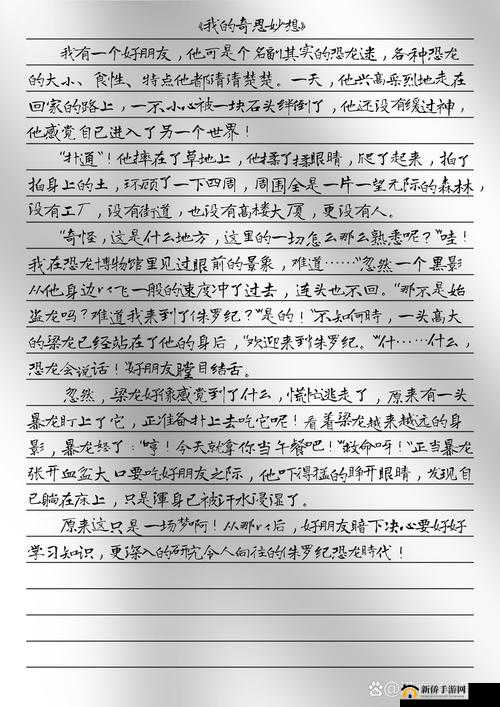 《我的奇思妙想》
我有一个好朋友，他可是个名副其实的恐龙迷，各种恐龙
的大小、食性、特点他都清清楚楚。一天，他兴高采烈地走在
回家的路上，一不小心被一块石头绊倒了，他还没有缓过神，
他感觉自己进入了另一个世界！
“扑通”！他摔在了草地上，他揉了揉眼睛，爬了起来，拍了
拍身上的土，环顾了一下四周，周围全是一片一望无际的森林，
没有工厂，没有街道，也没有高楼大厦，更没有人。
“奇怪，这是什么地方，这里的一切怎么那么熟悉呢？”哇！
我在恐龙博物馆里见过眼前的景象，难道……”忽然一个黑影
从他身边以飞一般的速度冲了过去，连头也不回。“那不是始
盗龙吗？难道我来到了侏罗纪？”“是的！”不知何時，一头高大
的梁龙已经站在了他的身后，“欢迎来到侏罗纪。”“什……什么，
恐龙会说话！”好朋友瞠目结舌。
忽然，梁龙好像感觉到了什么，慌忙逃走了，原来有一头
暴龙盯上了它，正准备扑上去吃它呢！看着梁龙越来越远的身
影，暴龙怒了：“哼！今天就拿你当午餐吧！”“救命呀！”正当暴龙
张开血盆大口要吃好朋友之际，他吓得猛的睁开眼睛，发现自
己躺在床上，只是渾身已被汗水浸湿了。
原来这只是一场梦啊！从那以后，好朋友暗下决心要好好
学习知识，更深入的研究令人向往的侏罗纪恐龙時代！
新侨手游网